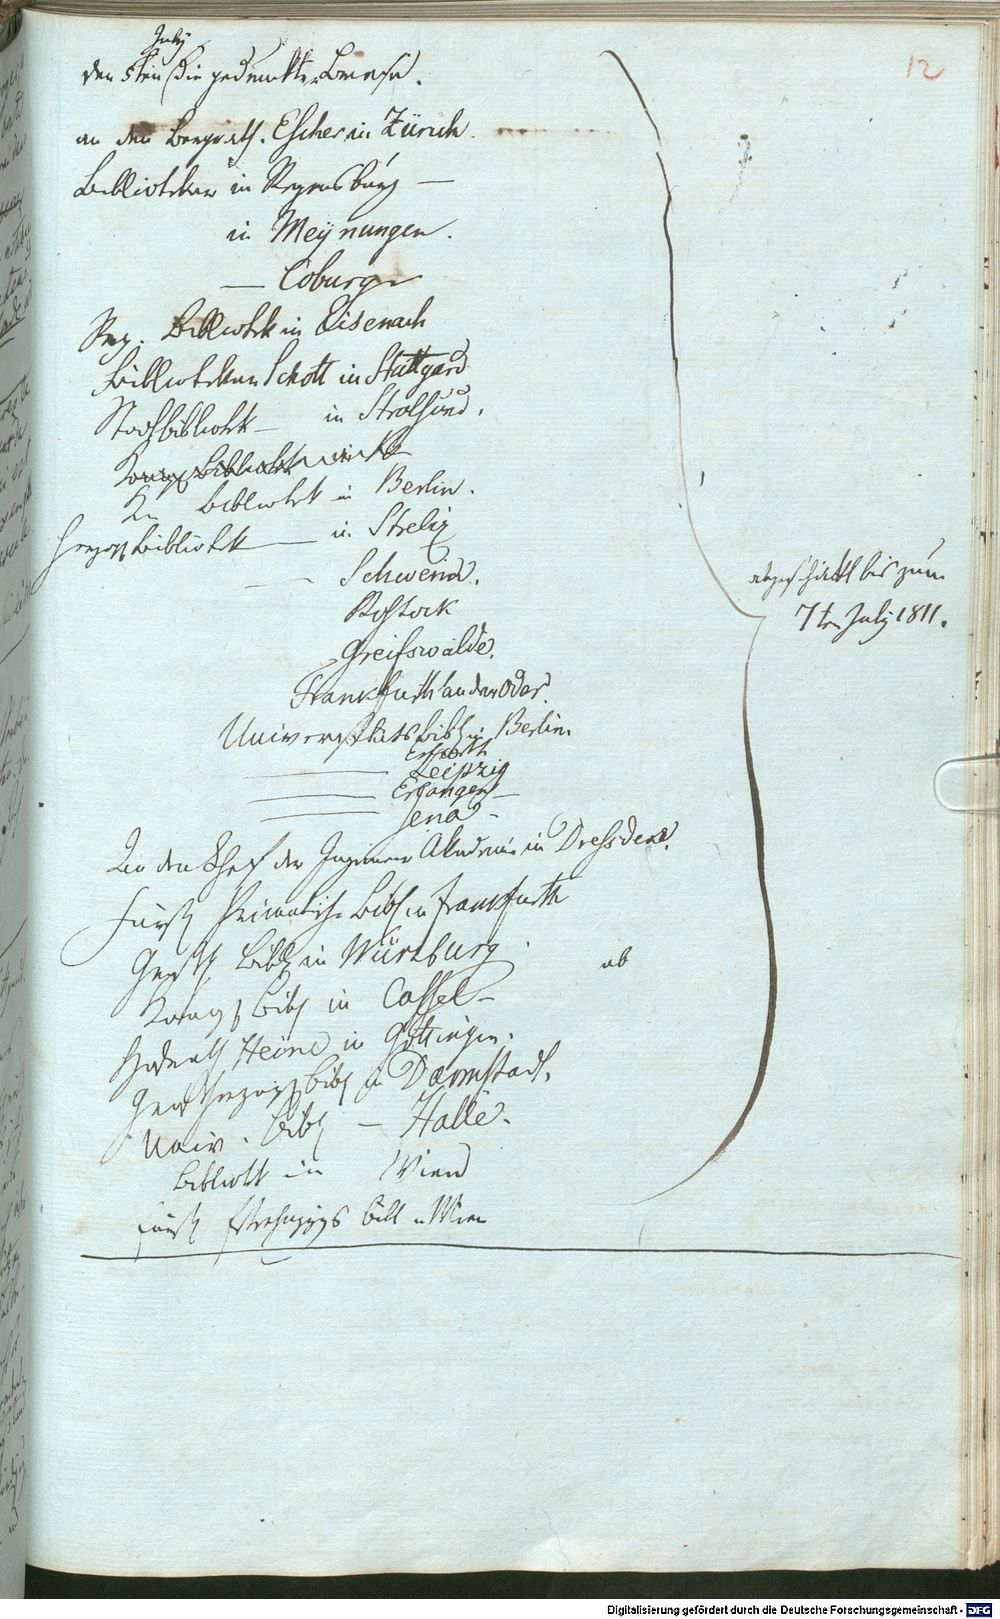 July
12
den 5ten die gedruckten Briefe.
an den Bergrath. Escher in Zürich.
Bibliothekar in Regensburg —
in Meynungen.
— Coburg
Reg. Bibliothek in Eisenach
Bibliothekar Schott in Stuttgard
Stadtbibliothek — in Stralsund.
Kn Bibliothek in Berlin.
Herzogl Bibliothek — in Streliz
— — Schwerin.
Rostock
Greifswalde.
Frankfurth an der Oder.
Universitäts Bibl in Berlin.
Erfurth
Leipzig
Erlangen —
Jena —
An den Chef der Ingenieur Akademie in Dresden.
Fürstl Primatische Bibl in Frankfurth
Bibl in Würzburg
ab
Königl Bibl in Cassel —
Hofrath Heine in Göttingen.
Bibl in Darmstadt.
Univ. Bibl — Halle.
Bibliothk in Wien
Fürstl Bibl in Wien
abgeschickt bis zum
7ten July 1811.
Digitalisierung gefördert durch die Deutsche Forschungsgemeinschaft - DFG